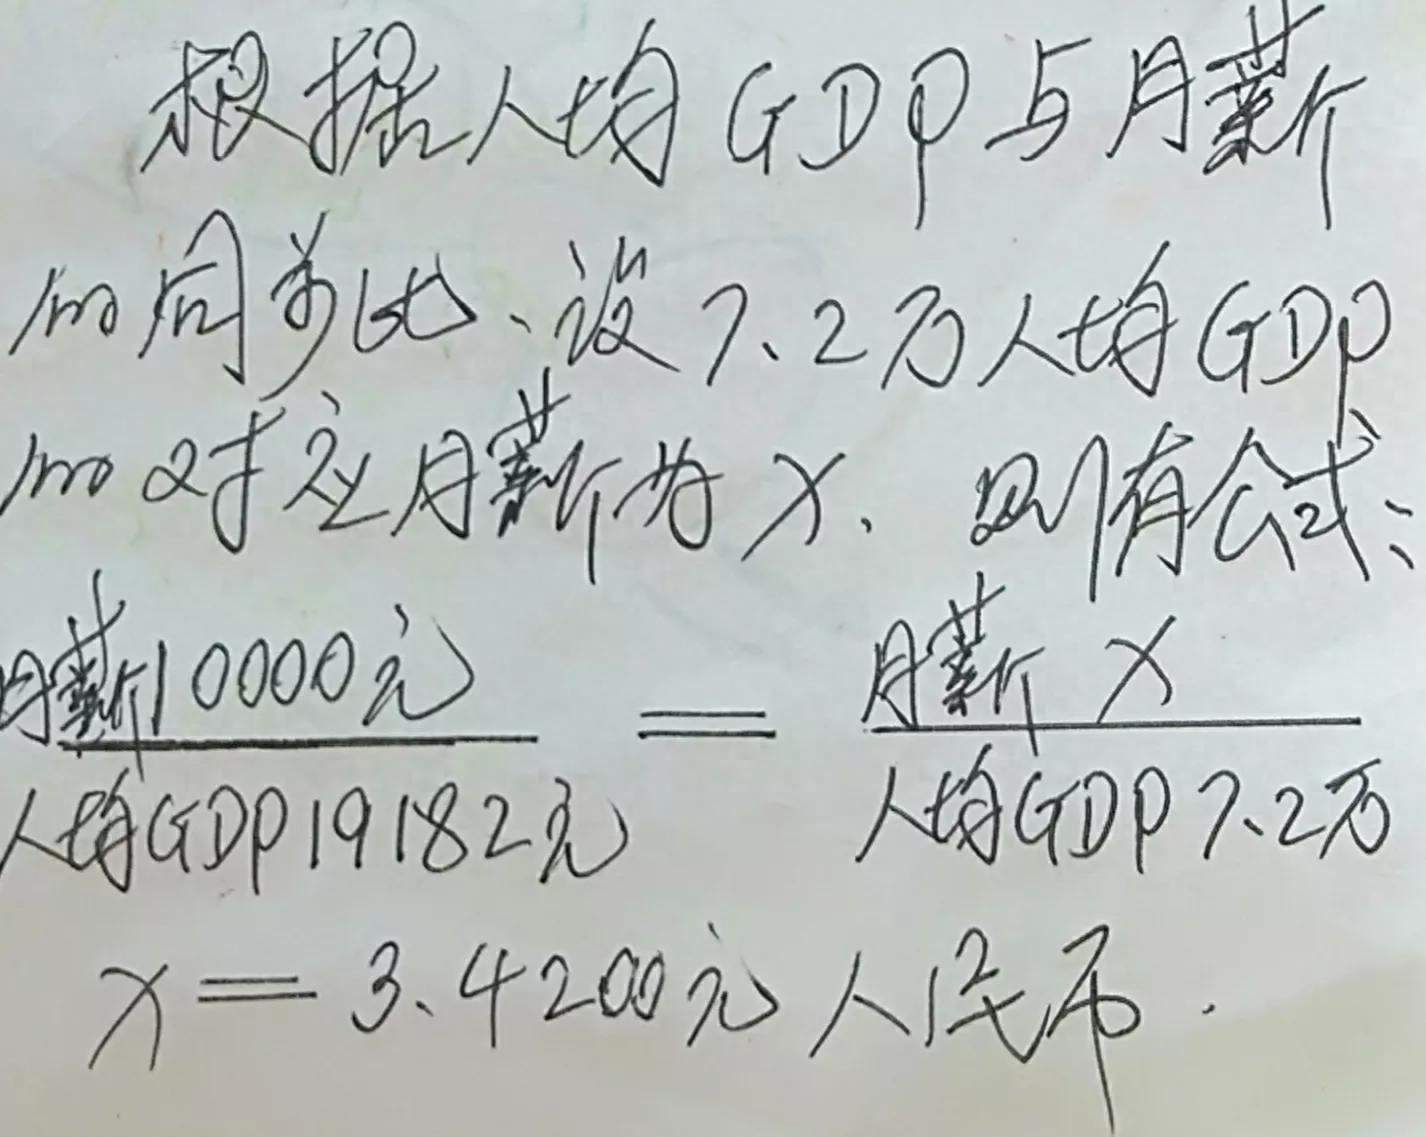 根据人均GDP与月薪
的同步比、设7.2万人均GDP
的对应月薪为x、则有公式:
月薪10000元 = 月薪 x
人均GDP19182元 人均GDP7.2万
x = 3.4200元人民币.